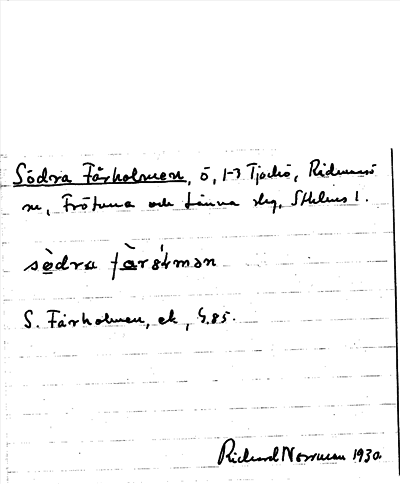 Södra Fårholmen, ö, 1-3 Tjockö, Ridmansö
sn, Frötuna och Länna skg, Sthlms l.
södra fàrəɫmən
S. Fårholmen, ek, S.85.
Richard Norrman 1930